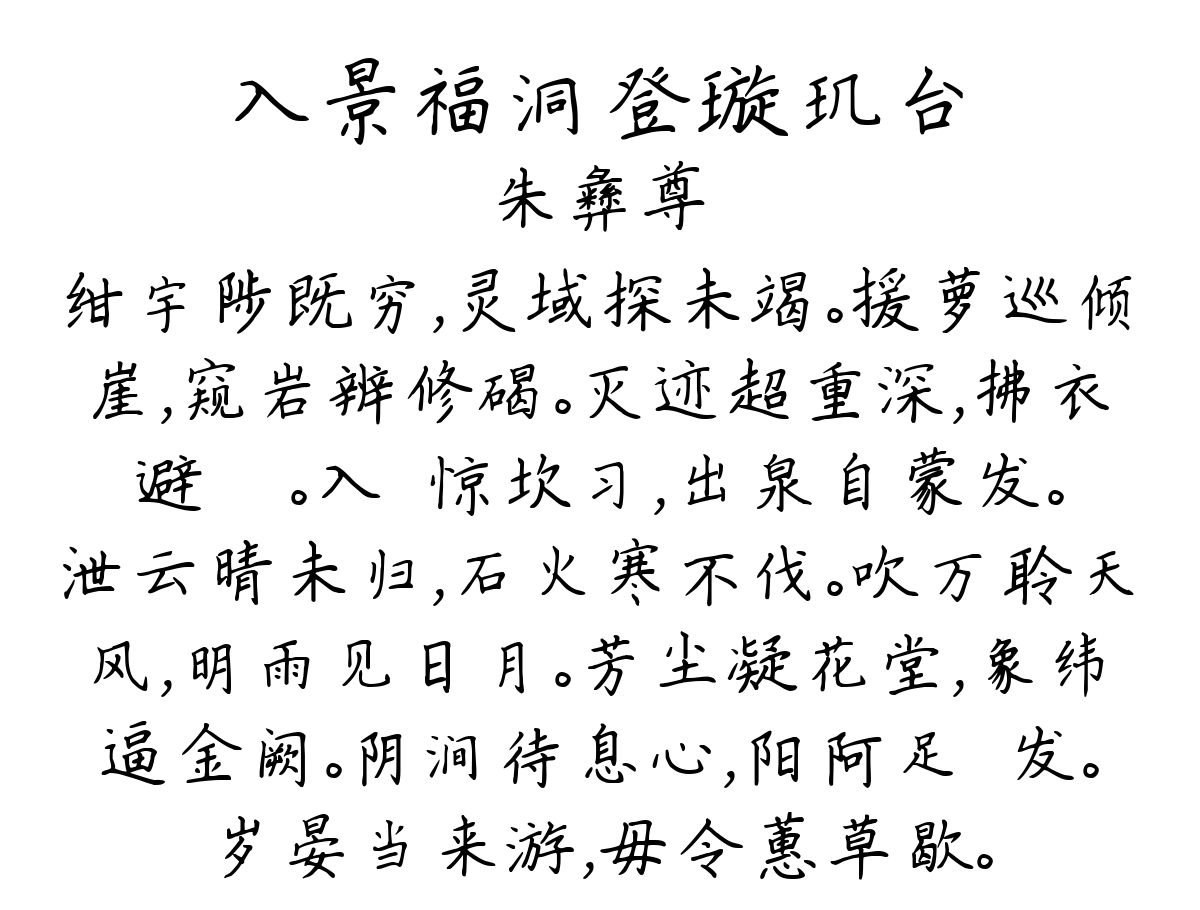 入景福洞登璇玑台
朱彝尊
绀宇陟既穷,灵域探未竭。援萝巡倾
崖,窥岩辨修碣。灭迹超重深,拂衣
避 。入 惊坎习,出泉自蒙发。
泄云晴未归,石火寒不伐。吹万聆天
风,明雨见日月。芳尘凝花堂,象纬
逼金阙。阴涧待息心,阳阿足 发。
岁晏当来游,毋令蕙草歇。